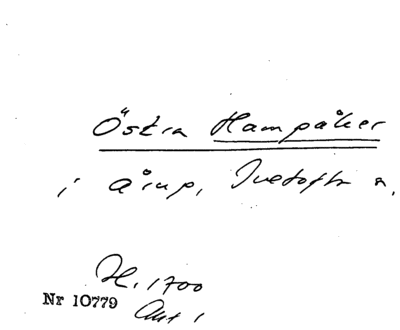 Östra Hampåker
i Årup, Ivetofta s.
H. 1700
Nr 10779
Akt 1